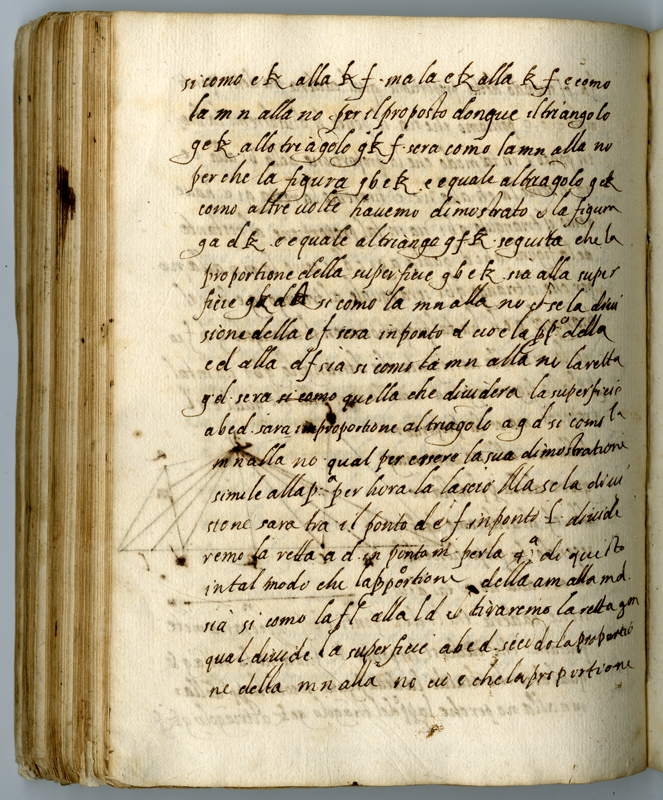 si como e k alla k f . ma la e k alla k f e como
la m n alla no . per il proposto donque il triangolo
g e k allo triāgolo g k f . sera como la mn alla no
perche la figura g b e k e equale al triāgolo g e k
como altre volte havemo dimostrato & la figura
g a d k e equale al triango g f k . seguita che la
proportione della superficie g b e k sia alla super
ficie g k d a si como la mn alla no et se la divi
sione della e f sera in ponto d cio e la pp.º della
e d alla d f sia si como la m n alla no la retta
g d . sera si como quella che dividera la superficie
a b e d . sara in proportione al triāgolo a g d si como la
m n alla no qual per essere la sua dimostratione
simile alla p.ª per hora la lascio Ma se la divi
sione sara tra il ponto d e f in ponto l . divide
remo la retta a d in ponto m . per la 4.ª di questo
in tal modo che la pportione della a m alla m d .
sia si como la f l alla l d & tiraremo la retta g m
qual divide la superficie a b e d . secōdo la proportio
ne della m n alla no cio e che la proportione